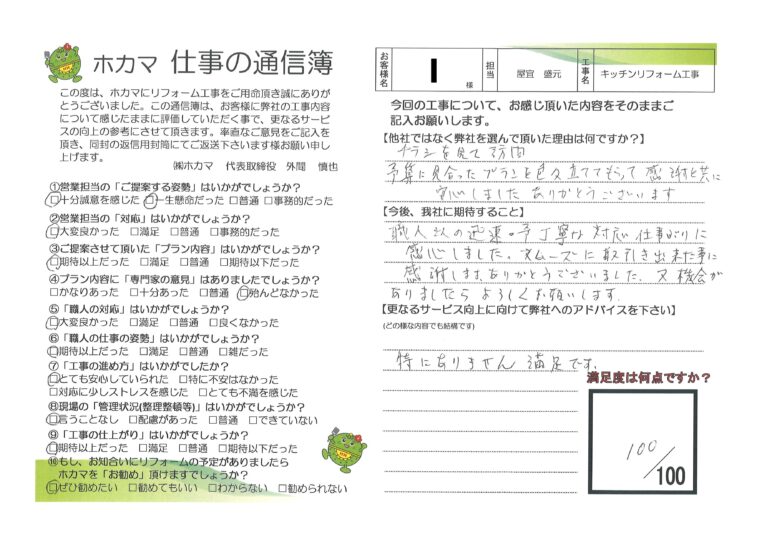 ホカマ 仕事の通信簿
この度は、ホカマにリフォーム工事をご用命頂き誠にありが
とうございました。この通信簿は、お客様に弊社の工事内容
について感じたままに評価していただく事で、更なるサービ
スの向上の参考にさせて頂きます。率直なご意見をご記入を
頂き、同封の返信用封筒にてご返送下さいます様お願い申し
上げます。
㈱ホカマ 代表取締役 外間 慎也
①営業担当の「ご提案する姿勢」はいかがでしょうか?
□十分誠意を感じた □一生懸命だった □普通 □事務的だった
②営業担当の「対応」はいかがでしょうか?
□大変良かった □満足 □普通 □事務的だった
③ご提案させて頂いた「プラン内容」はいかがでしょうか?
□期待以上だった □満足 □普通 □期待以下だった
④プラン内容に「専門家の意見」はありましたでしょうか?
□かなりあった □十分あった □普通 □殆んどなかった
⑤「職人の対応」はいかがでしょうか?
□大変良かった □満足 □普通 □良くなかった
⑥「職人の仕事の姿勢」はいかがでしょうか?
□期待以上だった □満足 □普通 □雑だった
⑦「工事の進め方」はいかがでしたか?
□とても安心していられた □特に不安はなかった
□対応に少しストレスを感じた □とても不満を感じた
⑧現場の「管理状況(整理整頓等)」はいかがでしょうか?
□言うことなし □配慮があった □普通 □できていない
⑨「工事の仕上がり」はいかがでしょうか?
□期待以上だった □満足 □普通 □期待以下だった
⑩もし、お知合いにリフォームの予定がありましたら
ホカマを「お勧め」頂けますでしょうか?
□ぜひ勧めたい □勧めてもいい □わからない □勧められない
お客様名 I 様 担当 屋宜 盛元 工事名 キッチンリフォーム工事
今回の工事について、お感じ頂いた内容をそのままご
記入お願いします。
【他社ではなく弊社を選んで頂いた理由は何ですか?】
チラシを見て訪問
予算に見合ったプランを色々立ててもらって感謝と共に
安心しました ありがとうございます
【今後、我社に期待すること】
職人さんの迅速・丁寧な対応 仕事ぶりに
感心しました。スムーズに取引き出来た事に
感謝します。ありがとうございました。又機会が
ありましたらよろしくお願いします。
【更なるサービス向上に向けて弊社へのアドバイスを下さい】
(どの様な内容でも結構です)
特にありません 満足です。
満足度は何点ですか?
100/100